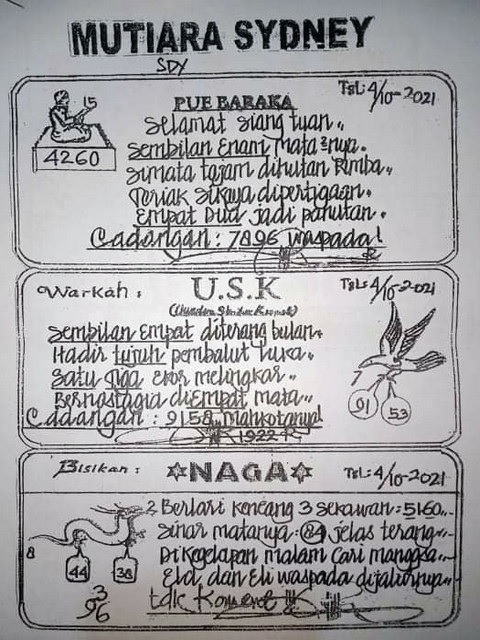 MUTIARA SYDNEY
SDY
Tgl: 4/10-2021
15
PUE BARAKA
4260
Selamat siang tuan..
Sembilan Enam mata nya.
Simata tajam dihutan Rimba..
Teriak dipertigaan.
Empat Dua jadi panutan.
Cadangan: 7896 waspada!
Warkah:
U.S.K
Tgl: 4/10-2021
Sembilan Empat diterang bulan.
Hadir tujuh pembalut luka.
Satu Tiga Ekor melingkar.
Bernostagia diEmpat mata.
Cadangan: 9158 Mahkotanya!
1922
7
91
53
Bisikan:
NAGA
Tgl: 4/10-2021
2 Berlari kencang 3 sekawan: 5160..
Sinar matanya: 84 jelas terang..
DiKegelapan malam Cari mangsa..
Ela, dan Eli waspada dijalurnya..
8
44
38
3
96